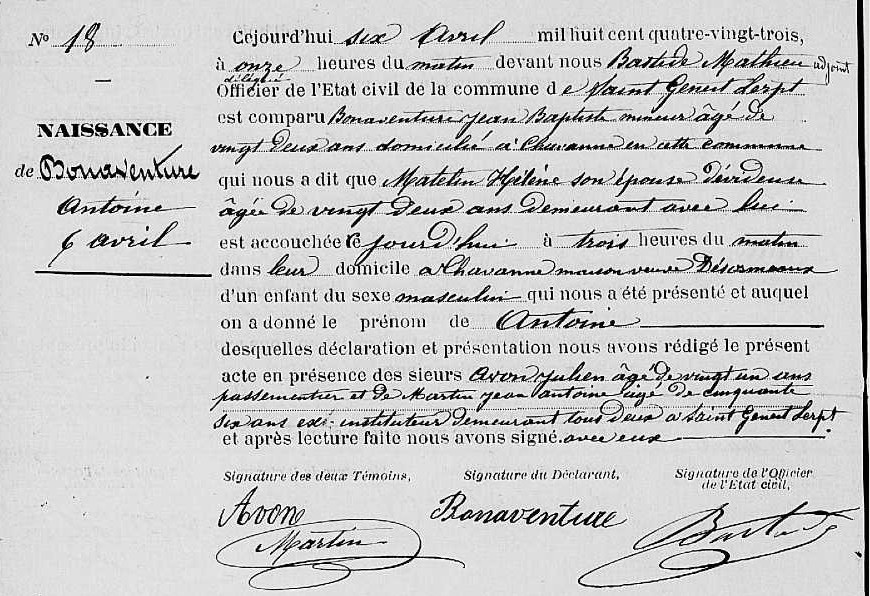 N° 18
NAISSANCE
de Bonaventure
Antoine
6 avril
Cejourd'hui six Avril mil huit cent quatre-vingt-trois,
à onze heures du matin devant nous Bastide Mathieu adjoint
délégué
Officier de l'Etat civil de la commune de Saint Genest Lerpt
est comparu Bonaventure Jean Baptiste mineur âgé de
vingt deux ans domicilié à Chavanne en cette commune
qui nous a dit que Matelin Hélène son épouse dévideuse
âgée de vingt deux ans demeurant avec lui
est accouchée ce jourd'hui à trois heures du matin
dans leur domicile à Chavanne maison veuve Désormeaux
d'un enfant du sexe masculin qui nous a été présenté et auquel
on a donné le prénom de Antoine
desquelles déclaration et présentation nous avons rédigé le présent
acte en présence des sieurs Avon Julien âgé de vingt un ans
passementier et de Martin Jean Antoine âgé de cinquante
six ans ex: instituteur demeurant tous deux à Saint Genest Lerpt
et après lecture faite nous avons signé avec eux.
Signature des deux Témoins,
Signature du Déclarant,
Signature de l'Officier
de l'Etat civil,
Avon
Martin
Bonaventure
Bastide